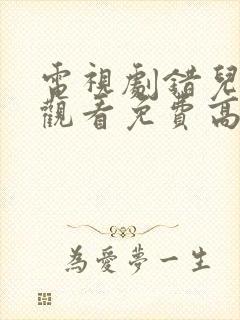 電視劇錯兒
觀看免費高
為愛夢一生